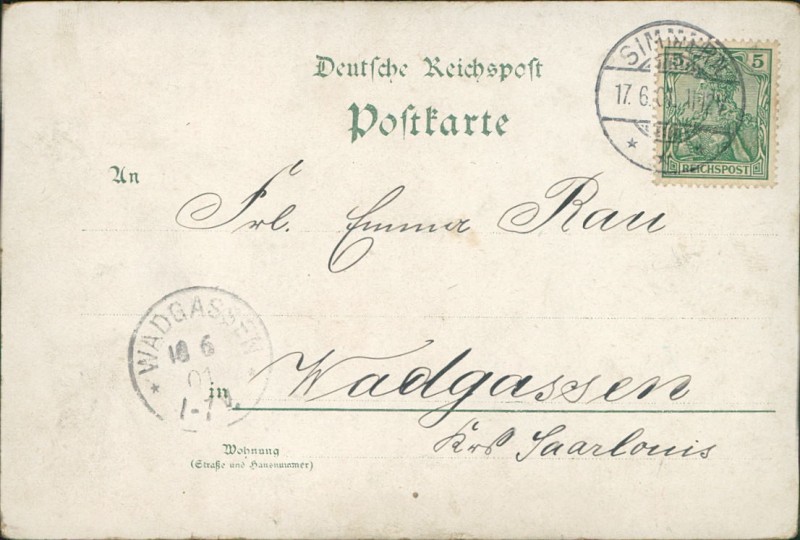 Deutsche Reichspost
Postkarte
SIMMERN
17. 6. 01.
5 5
REICHSPOST
An
Frl. Emma Rau
WADGASSEN
18 6
01
in Wadgassen
Krs Saarlouis
Wohnung
(Straße und Hausnummer)